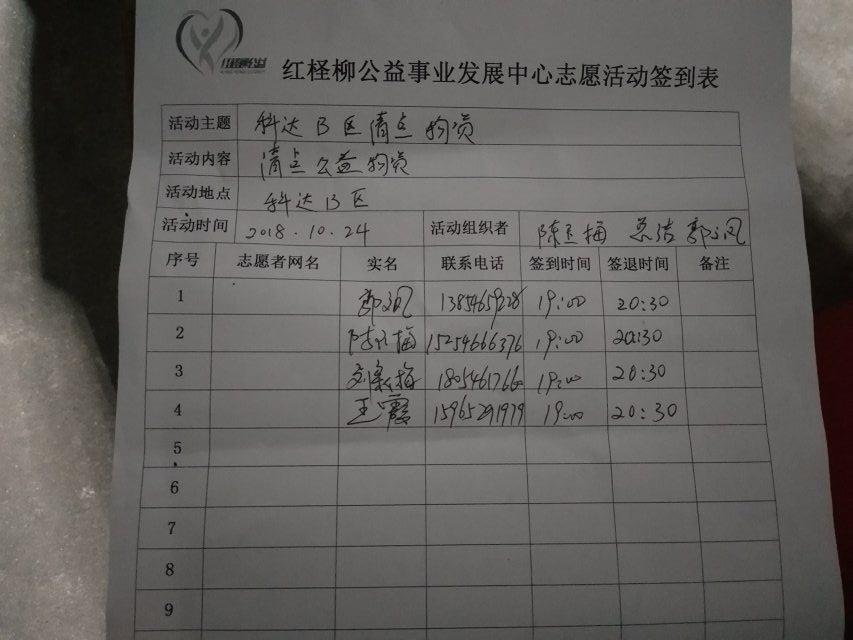 红柽柳公益事业发展中心志愿活动签到表
活动主题 科达B区清点物资
活动内容 清点公益物资
活动地点 科达B区
活动时间 2018.10.24 活动组织者 陈玉梅 郭凤
序号 志愿者网名 实名 联系电话 签到时间 签退时间 备注
1 19:00 20:30
2 15254666376 19:00 20:30
3 19:00 20:30
4 王霞 15965291979 19:00 20:30
5
6
7
8
9